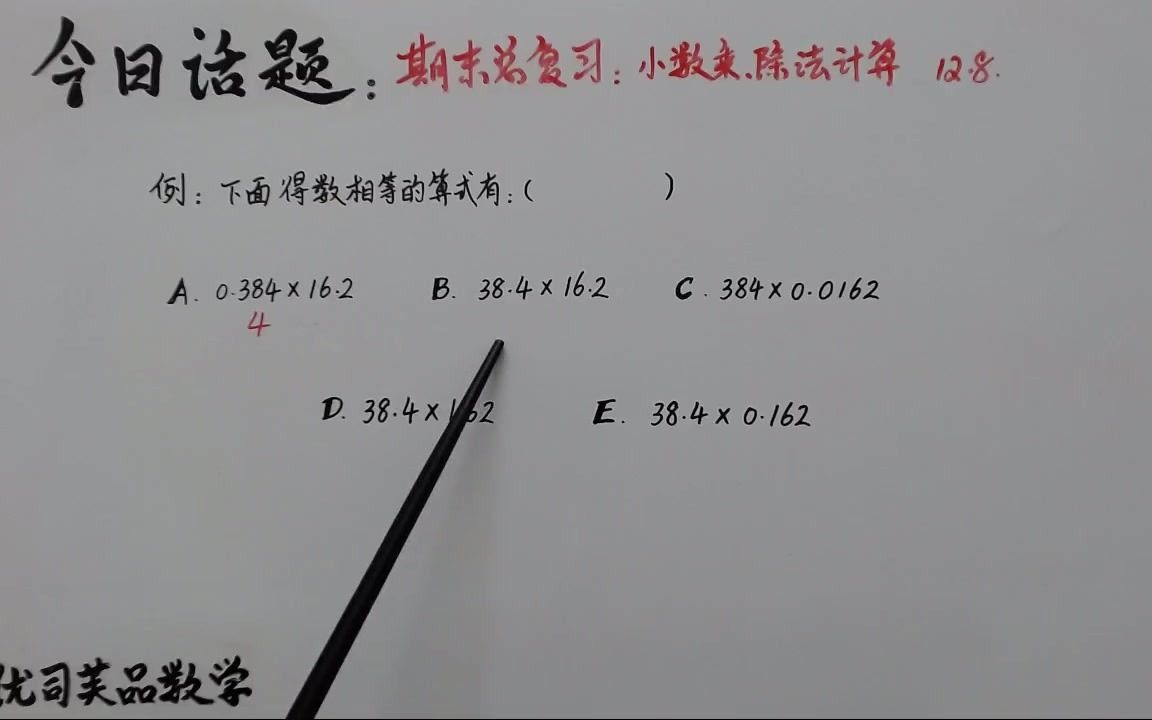 今日话题：期末总复习：小数乘.除法计算 12.8.
例：下面得数相等的算式有：（ ）
A. 0.384×16.2 B. 38.4×16.2 C. 384×0.0162
4
D. 38.4×162 E. 38.4×0.162
优司芙品数学